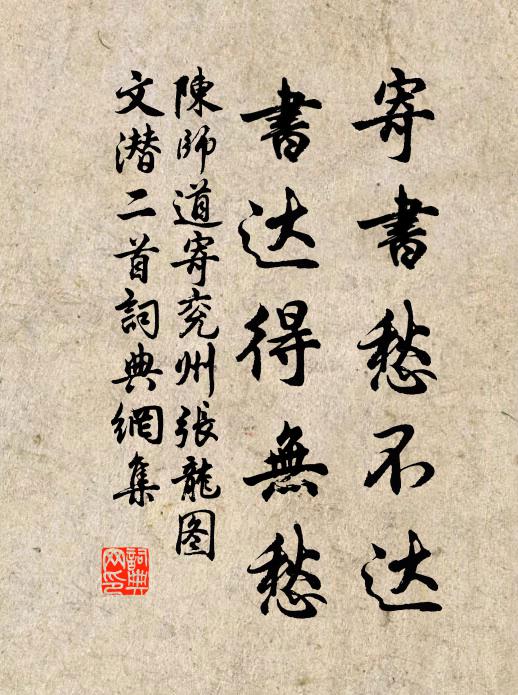 寄書愁不达
書达得無愁
陳師道寄兖州張龍图
文潜二首詞典網集
詞典网印